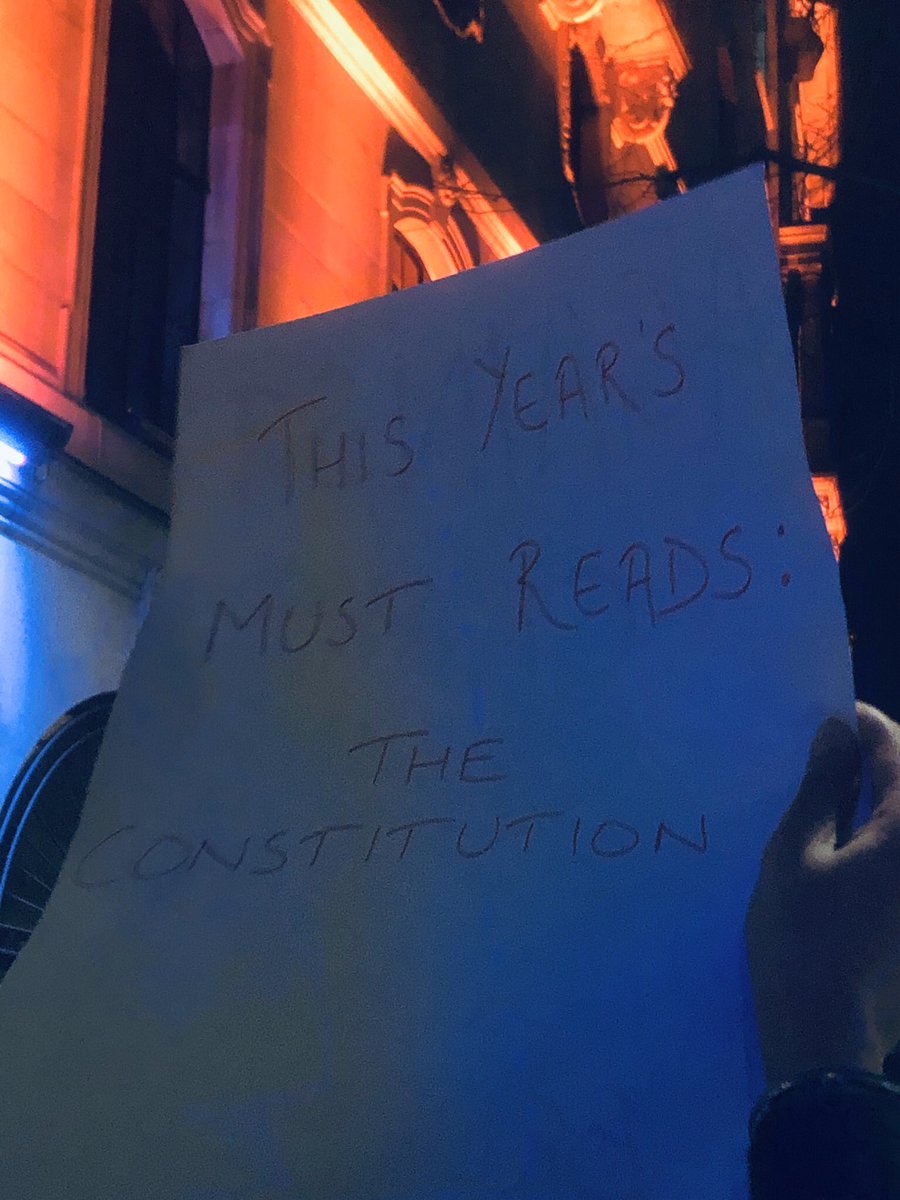 THIS YEAR'S
MUST READS:
THE
CONSTITUTION